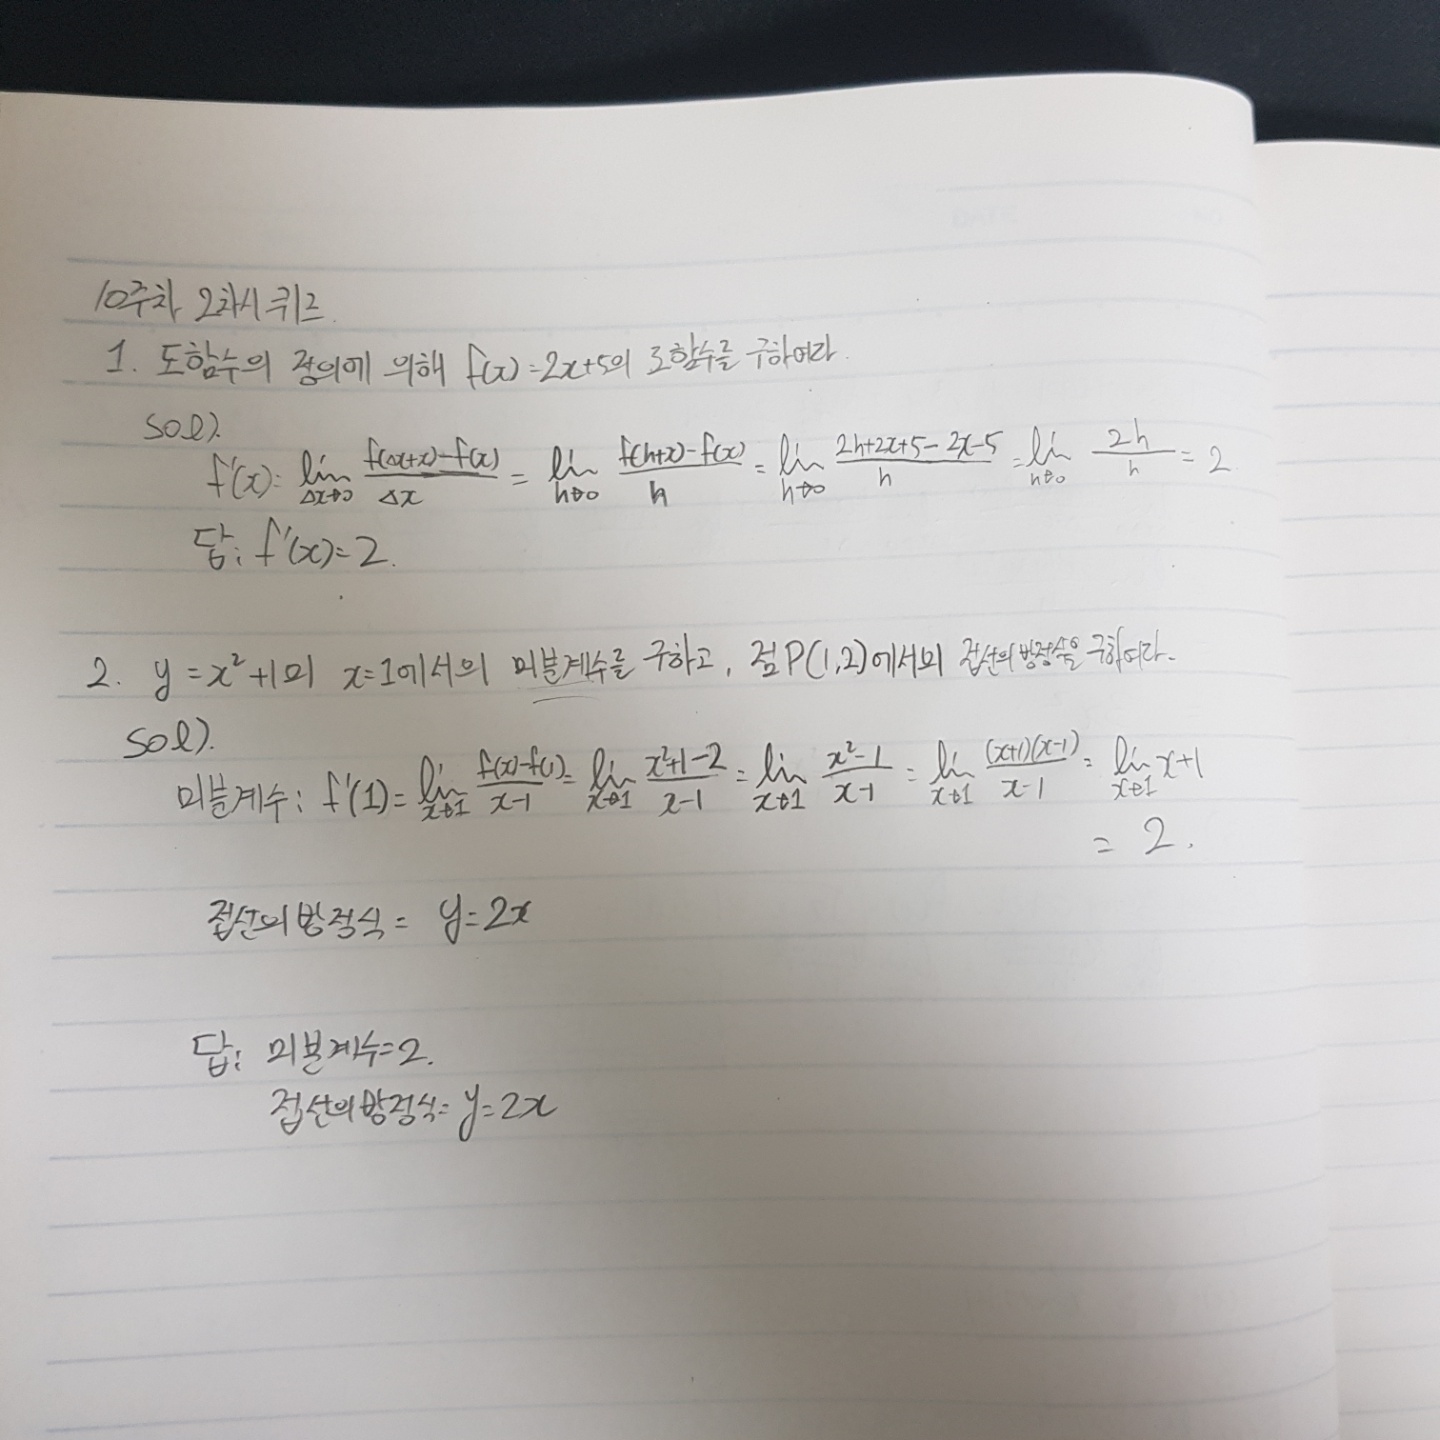 10주차 2차시 퀴즈.
1. 도함수의 정의에 의해 f(x)=2x+5의 도함수를 구하여라.
sol).
f'(x)= lim Δx→0 f(Δx+x)-f(x) / Δx = lim h→0 f(h+x)-f(x) / h = lim h→0 2h+2x+5-2x-5 / h = lim h→0 2h / h = 2.
답: f'(x)=2.
2. y=x²+1의 x=1에서의 미분계수를 구하고, 점P(1,2)에서의 접선의 방정식을 구하여라.
sol).
미분계수: f'(1)= lim x→1 f(x)-f(1) / x-1 = lim x→1 x²+1-2 / x-1 = lim x→1 x²-1 / x-1 = lim x→1 (x+1)(x-1) / x-1 = lim x→1 x+1
= 2.
접선의 방정식= y=2x
답: 미분계수=2.
접선의 방정식= y=2x